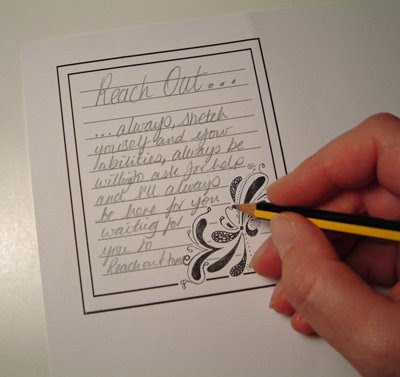 Reach Out...
...always, sketch
yourself and your
labilities, always be
willing to ask for help
and I'll always
be here for you
waiting for
you to
Reach out to me